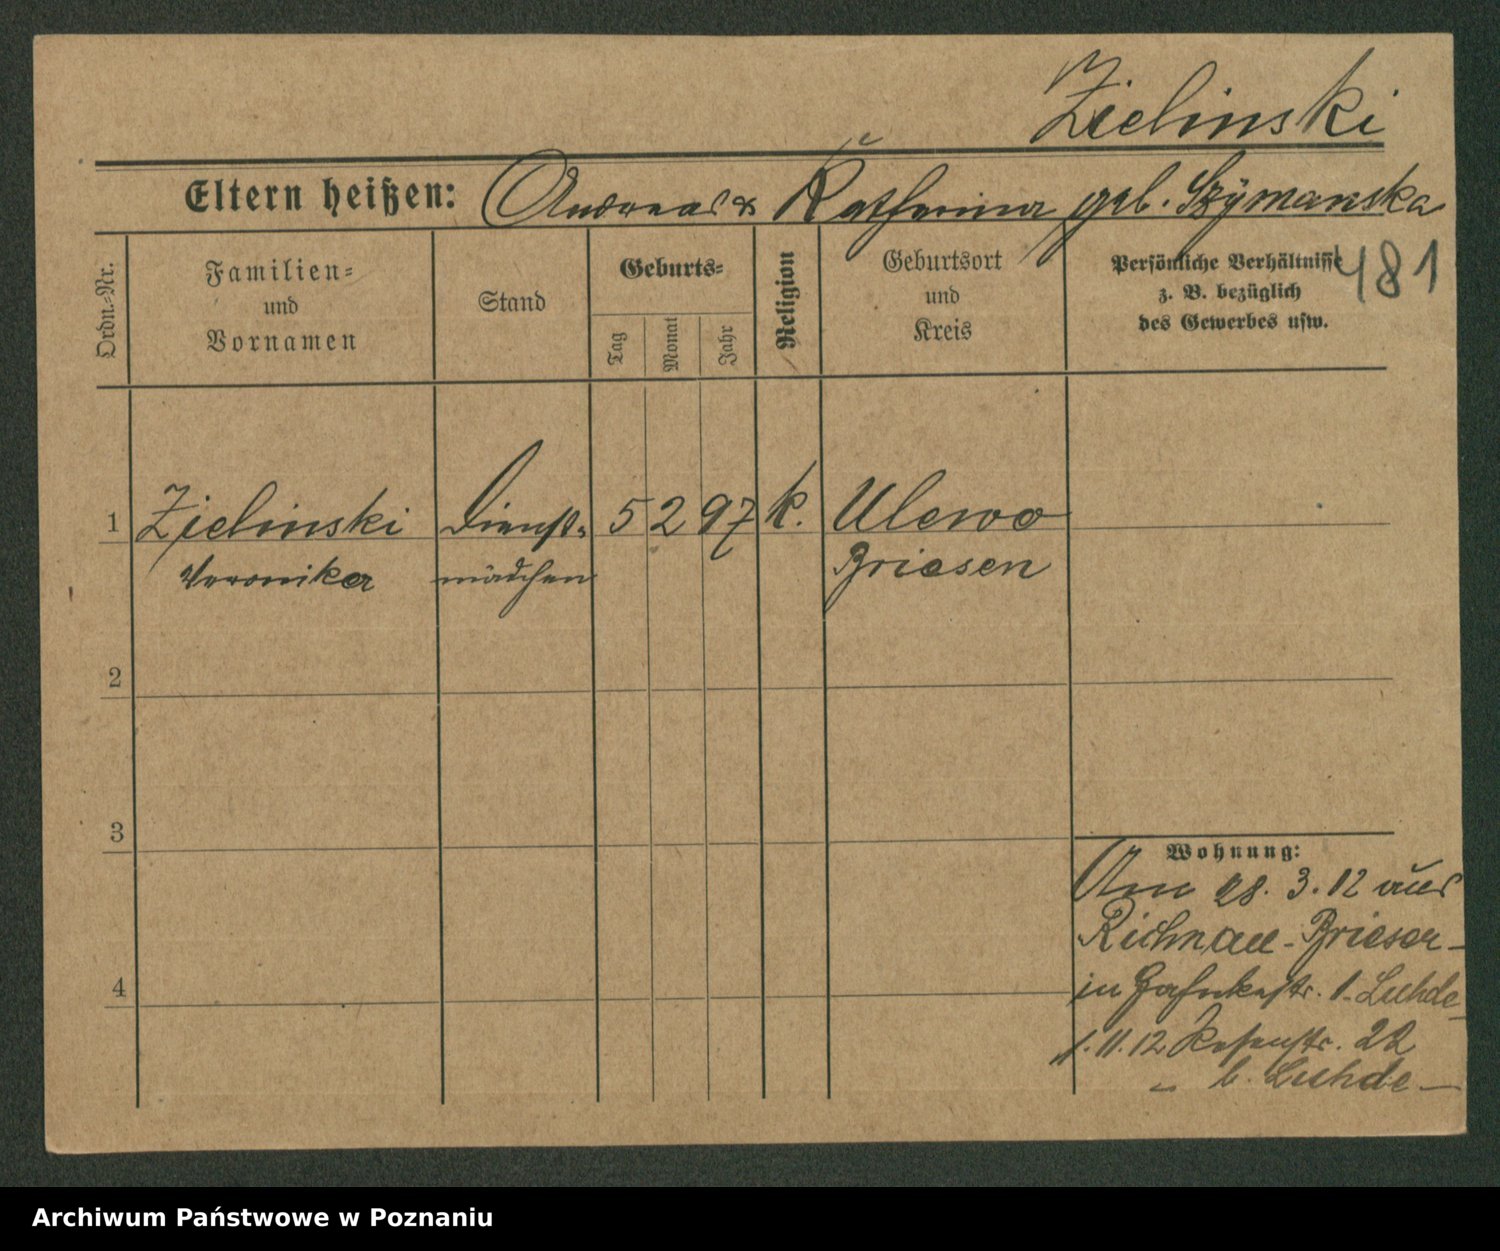 Zielinski
Eltern heißen: Andreas & Katharina geb. Szÿmanska
481
Ordn.-Nr.
Familien-
und
Vornamen
Stand
Geburts-
Tag
Monat
Jahr
Religion
Geburtsort
und
Kreis
Persönliche Verhältnisse
z. B. bezüglich
des Gewerbes usw.
1 Zielinski Dienst- 5 2 97 k. Ulewo
Veronika mädchen Briesen
2
3
4
Wohnung:
Am 28. 3. 12 aus
Richnau - Briesen -
in 1. Luhde
1. 11. 12 22
b. Luhde
Archiwum Państwowe w Poznaniu